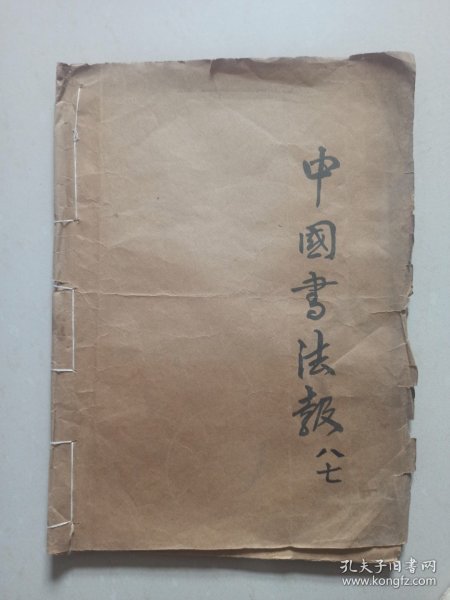 中國書法報
八七
孔夫子旧书网
www.kongfz.com